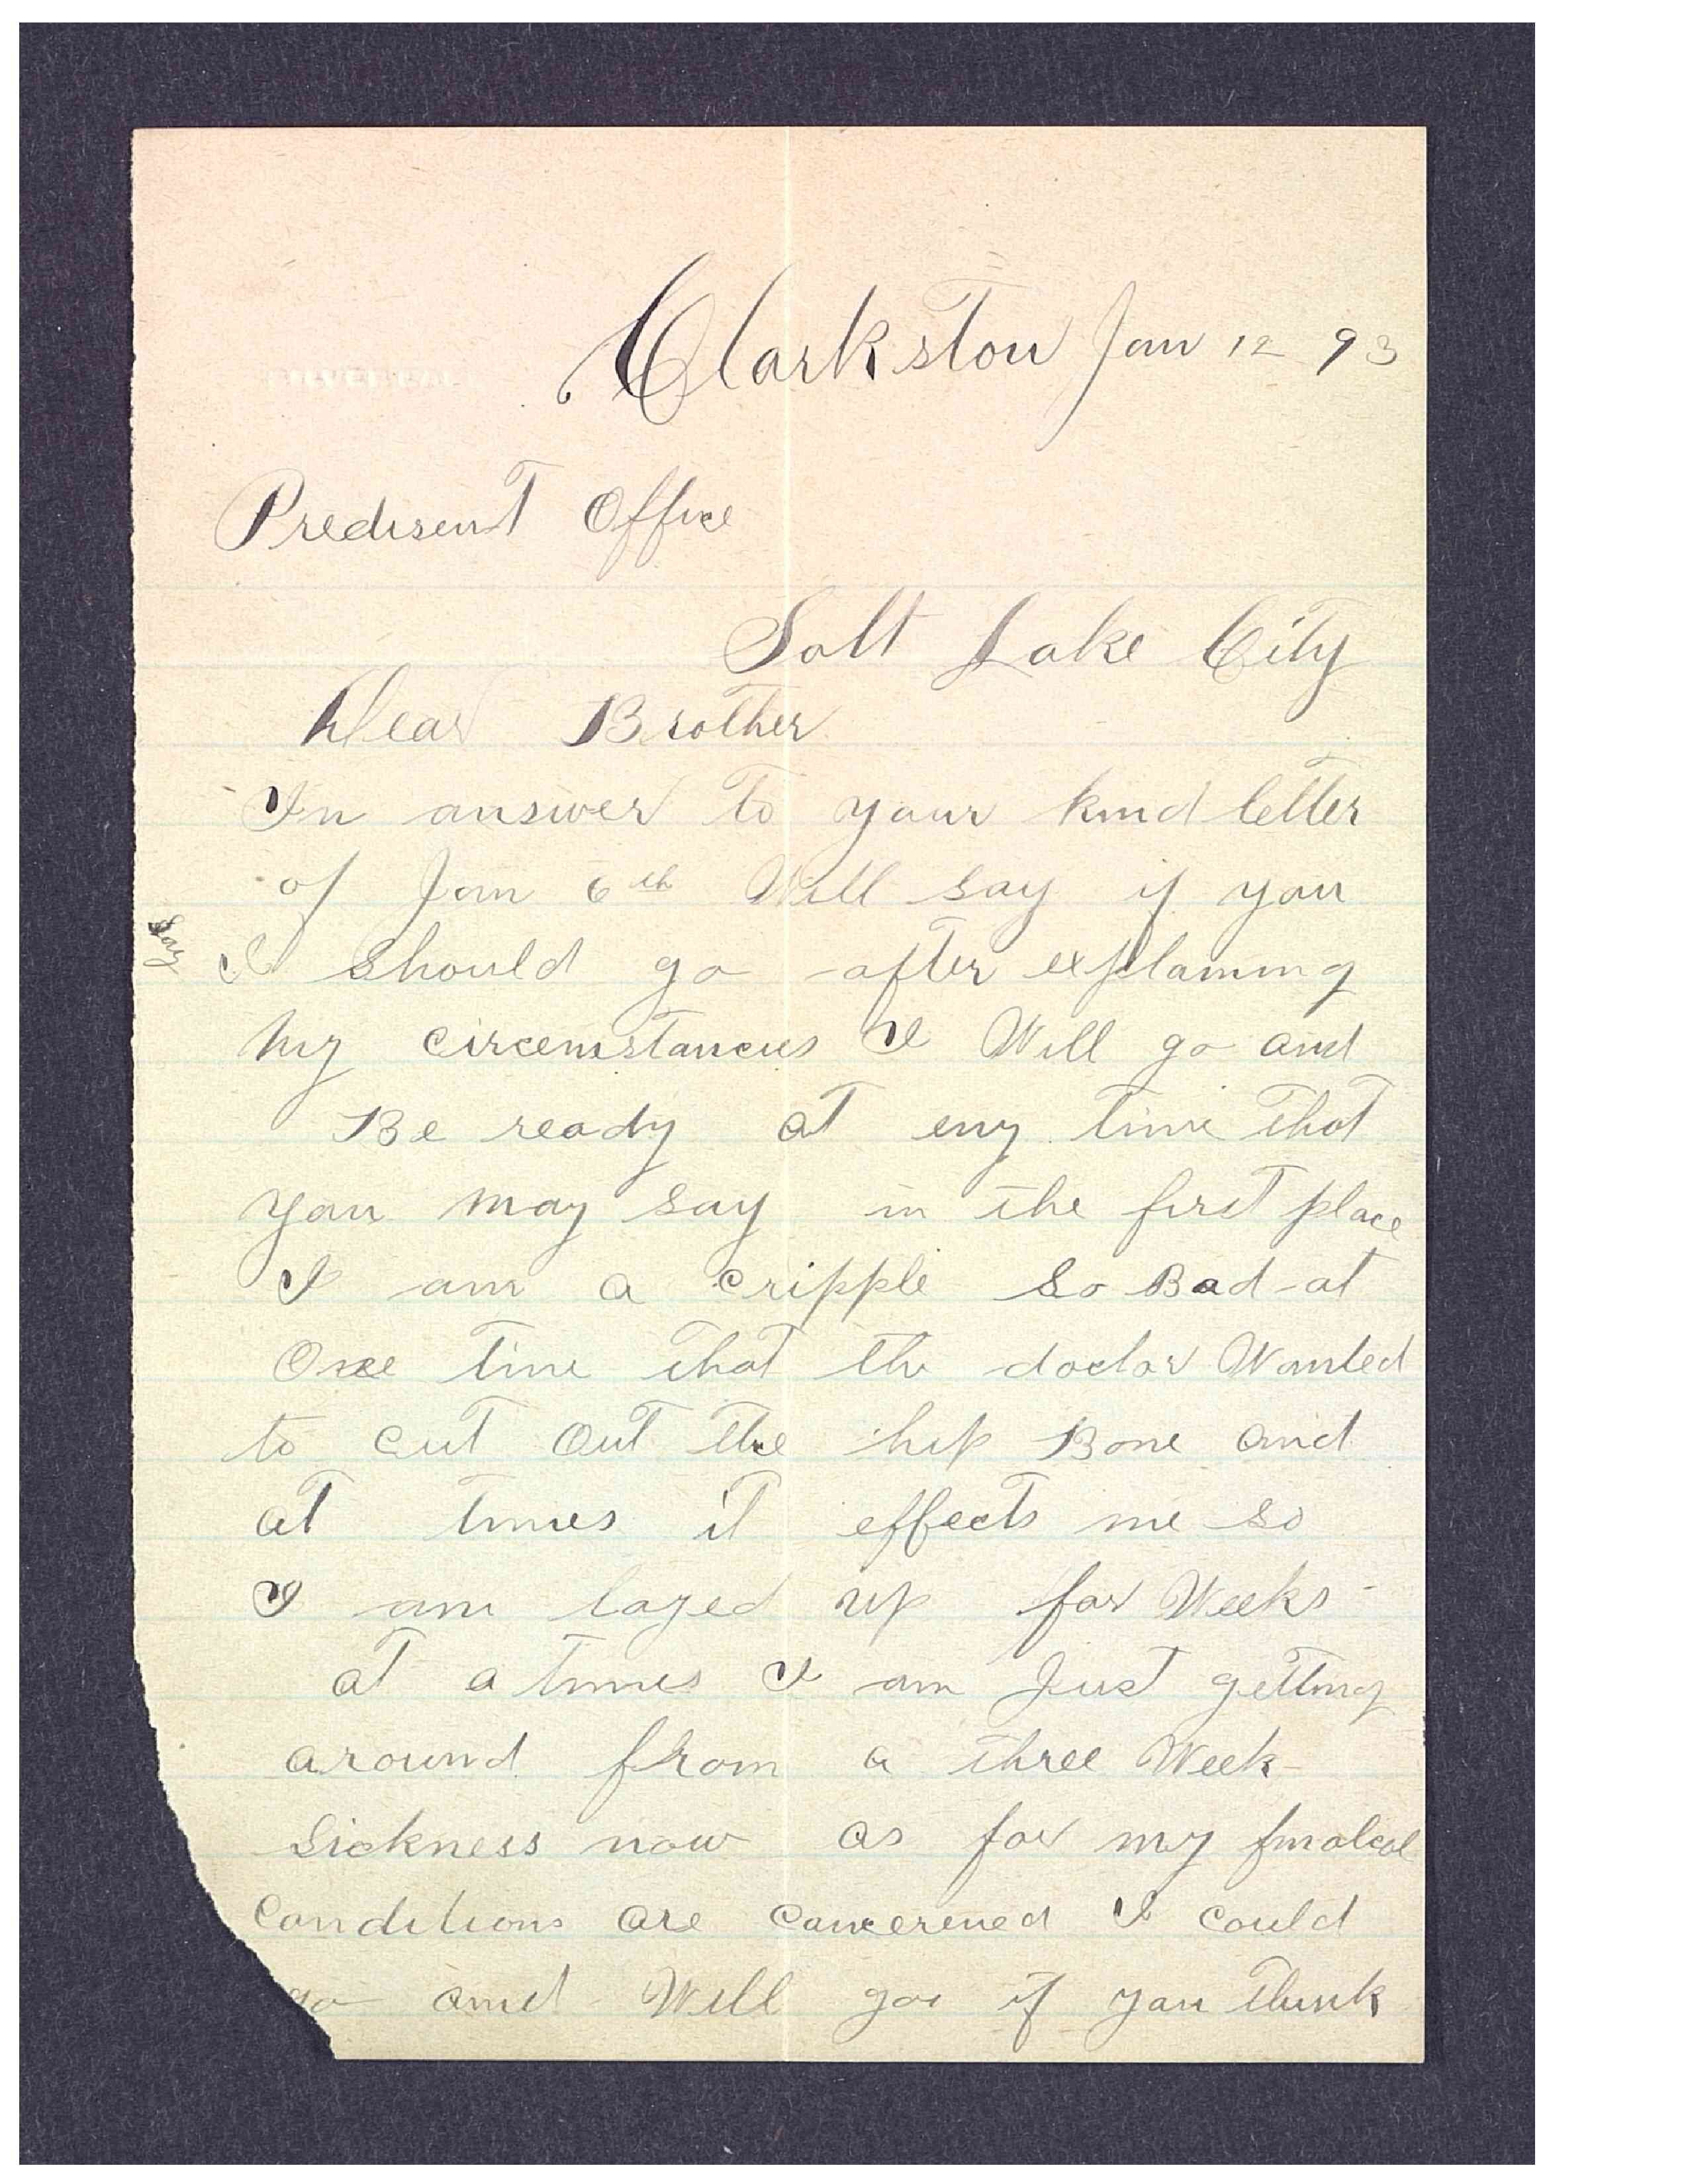 Clarkston Jan 12 93
Predisent Office
Salt Lake City
Dear Brother
In answer to your kind letter
of Jan 6th Will say if you
say I should go after explaining
my circemstances I Will go and
Be ready at eny time that
you may say in the first place
I am a cripple so Bad at
One time that the doctor Wanted
to cut out the hip Bone and
at times it effects me so
I am layed up for Weeks
at a times I am Just getting
around from a three Week
sickness now as for my
conditions are concerened I could
go and Will go if you think